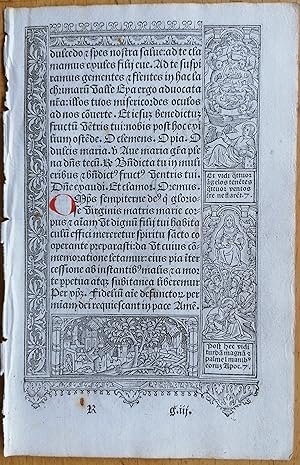 dulcedo ⁊ spes nostra salue: ad te cla
mamus exules filij eue. Ad te suspi
ramus gementes ⁊ flentes in hac la
chrimarū valle Eya ergo aduocata
nr̄a: illos tuos misericordes oculos
ad nos cōuerte. Et iesū benedictū
fructū vētris tui: nobis post hoc exi
lium ostēde. O clemens. O pia. O
dulcis maria. ℣ Aue maria grā ple
na dn̄s tecū. R̸ Bn̄dicta tu in muli
eribus ⁊ bn̄dict⁹ fruct⁹ vētris tui.
Dn̄e exaudi. Et clamor. Oremus.
OMp̄s sempiterne de⁹ q̇ glorio
se virginis matris marie cor
pus ⁊ aīam vt dignū filij tui habita
culū effici mereretur spiritu sācto co
operante preparasti: da vt cuius cō
memoratione letamur: eius pia īter
cessione ab instātib⁹ malis ⁊ a mor
te ppetua atqȝ subitanea liberemur
Per xp̄m. Fideliū aīe defunctor. per
miam dei requiescant in pace Amē.
Et vidi q̄tuor
āgelos tenētes
q̄tuor ventos
Post hec vidi
turbā magnā ⁊
palme ī manib⁹
eorum Apoc. 7.
R g.iij.